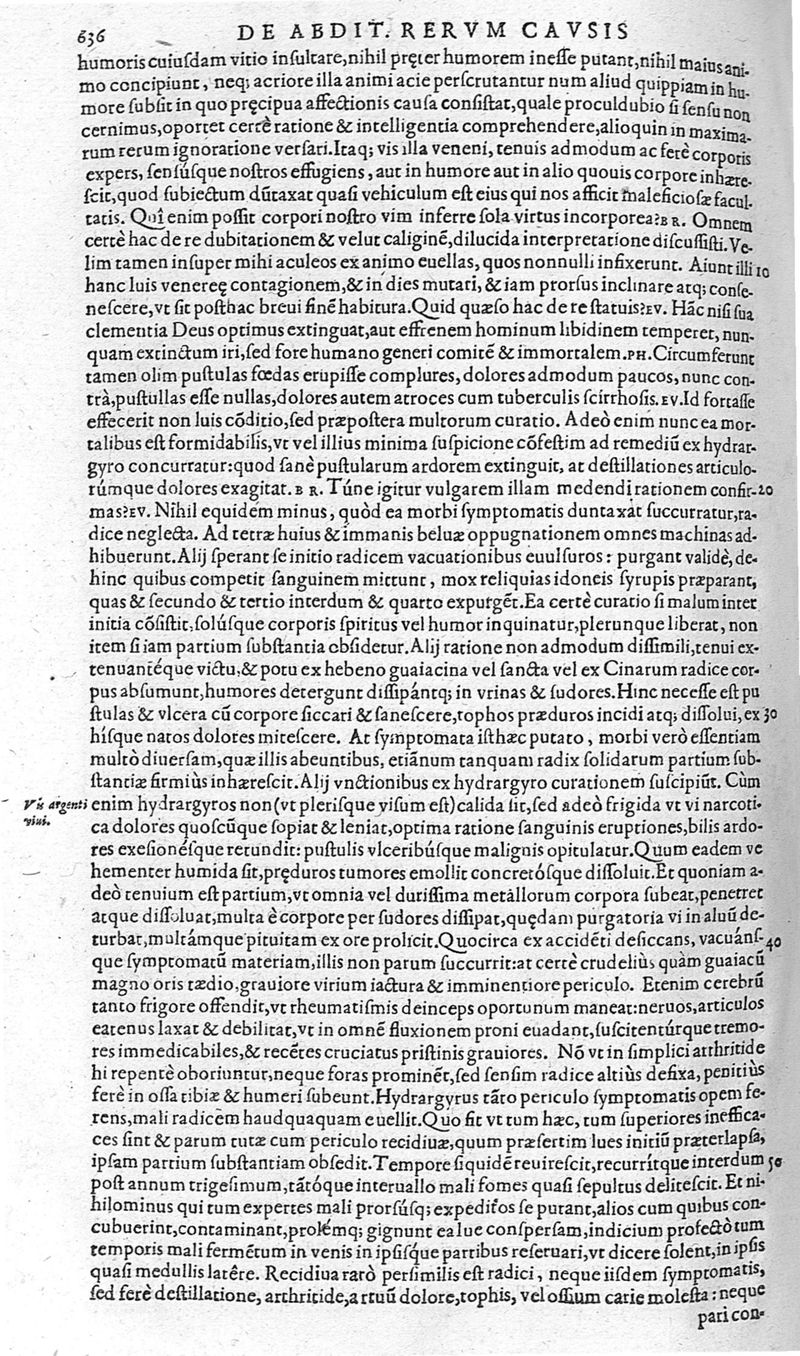 636 DE ABDIT. RERVM CAVSIS
humoris cuiuſdam vitio inſultare,nihil pręter humorem ineſſe putant,nihil maius ani-
mo concipiunt, neq; acriore illa animi acie perſcrutantur num aliud quippiam in hu-
more ſubſit in quo pręcipua affectionis cauſa conſiſtat,quale proculdubio ſi ſenſu non
cernimus,oportet certè ratione & intelligentia comprehendere,alioquin in maxima-
rum rerum ignoratione verſari.Itaq; vis illa veneni, tenuis admodum ac ferè corporis
expers, ſenſúſque noſtros effugiens, aut in humore aut in alio quouis corpore inhære-
ſcit,quod ſubiectum dũtaxat quaſi vehiculum eſt eius qui nos afficit maleficioſæ facul-
tatis. Quî enim poſſit corpori noſtro vim inferre ſola virtus incorporea?BR. Omnem
certè hac de re dubitationem & velut caliginẽ,dilucida interpretatione diſcuſſiſti.Ve-
lim tamen inſuper mihi aculeos ex animo euellas, quos nonnulli infixerunt. Aiunt illi 10
hanc luis venereę contagionem,& in dies mutari, & iam prorſus inclinare atq; conſe-
neſcere,vt ſit poſthac breui finẽ habitura.Quid quæſo hac de re ſtatuis?EV. Hãc niſi ſua
clementia Deus optimus extinguat,aut effrenem hominum libidinem temperet, nun-
quam extinctum iri,ſed fore humano generi comitẽ & immortalem.PH.Circumferunt
tamen olim puſtulas fœdas erupiſſe complures, dolores admodum paucos, nunc con-
trà,puſtullas eſſe nullas,dolores autem atroces cum tuberculis ſcirrhoſis.EV.Id fortaſſe
effecerit non luis cõditio,ſed præpoſtera multorum curatio. Adeò enim nunc ea mor-
talibus eſt formidabilis,vt vel illius minima ſuſpicione cõfeſtim ad remediũ ex hydrar-
gyro concurratur:quod ſanè puſtularum ardorem extinguit, at deſtillationes articulo-
rúmque dolores exagitat.BR. Túne igitur vulgarem illam medendi rationem confir- 20
mas?EV. Nihil equidem minus, quòd ea morbi ſymptomatis duntaxat ſuccurratur,ra-
dice neglecta. Ad tetræ huius & immanis beluæ oppugnationem omnes machinas ad-
hibuerunt.Alij ſperant ſe initio radicem vacuationibus euulſuros: purgant validè, de-
hinc quibus competit ſanguinem mittunt, mox reliquias idoneis ſyrupis præparant,
quas & ſecundo & tertio interdum & quarto expurgẽt.Ea certè curatio ſi malum inter
initia cõſiſtit,ſolúſque corporis ſpiritus vel humor inquinatur,plerunque liberat, non
item ſi iam partium ſubſtantia obſidetur.Alij ratione non admodum diſſimili,tenui ex-
tenuantéque victu,& potu ex hebeno guaiacina vel ſancta vel ex Cinarum radice cor-
pus abſumunt,humores detergunt diſſipántq; in vrinas & ſudores.Hinc neceſſe eſt pu
ſtulas & vlcera cũ corpore ſiccari & ſaneſcere,tophos præduros incidi atq; diſſolui, ex 30
híſque natos dolores miteſcere. At ſymptomata iſthæc putato, morbi verò eſſentiam
multò diuerſam,quæ illis abeuntibus, etiãnum tanquam radix ſolidarum partium ſub-
ſtantiæ firmiùs inhæreſcit.Alij vnctionibus ex hydrargyro curationem ſuſcipiũt. Cùm
Vis argenti viui.
enim hydrargyros non(vt pleriſque viſum eſt)calida ſit,ſed adeò frigida vt vi narcoti-
ca dolores quoſcũque ſopiat & leniat,optima ratione ſanguinis eruptiones,bilis ardo-
res exeſionéſque retundit: puſtulis vlceribúſque malignis opitulatur.Quum eadem ve
hementer humida ſit,pręduros tumores emollit concretóſque diſſoluit.Et quoniam a-
deò tenuium eſt partium,vt omnia vel duriſſima metallorum corpora ſubeat,penetret
atque diſſoluat,multa è corpore per ſudores diſſipat,quędam purgatoria vi in aluũ de-
turbat,multámque pituitam ex ore prolicit.Quocirca ex accidẽti deſiccans, vacuánſ- 40
que ſymptomatũ materiam,illis non parum ſuccurrit:at certè crudeliùs quàm guaiacũ
magno oris tædio,grauiore virium iactura & imminentiore periculo. Etenim cerebrũ
tanto frigore offendit,vt rheumatiſmis deinceps oportunum maneat:neruos,articulos
eatenus laxat & debilitat,vt in omnẽ fluxionem proni euadant,ſuſcitentúrque tremo-
res immedicabiles,& recẽtes cruciatus priſtinis grauiores. Nõ vt in ſimplici arthritide
hi repentè oboriuntur,neque foras prominẽt,ſed ſenſim radice altiùs defixa, penitiùs
ferè in oſſa tibiæ & humeri ſubeunt.Hydrargyrus tãto periculo ſymptomatis opem fe-
rens,mali radicem haudquaquam euellit.Quo fit vt tum hæc, tum ſuperiores ineffica-
ces ſint & parum tutæ cum periculo recidiuæ,quum præſertim lues initiũ præterlapſa,
ipſam partium ſubſtantiam obſedit.Tempore ſiquidẽ reuireſcit,recurrítque interdum 50
poſt annum trigeſimum,tãtóque interuallo mali fomes quaſi ſepultus deliteſcit. Et ni-
hilominus qui tum expertes mali prorſúſq; expeditos ſe putant,alios cum quibus con-
cubuerint,contaminant,prolémq; gignunt ea lue conſperſam,indicium profectò tum
temporis mali fermẽtum in venis in ipſíſque partibus reſeruari,vt dicere ſolent,in ipſis
quaſi medullis latêre. Recidiua rarò perſimilis eſt radici, neque iiſdem ſymptomatis,
ſed ferè deſtillatione, arthritide,artuũ dolore,tophis, vel oſſium carie moleſta: neque
pari con-